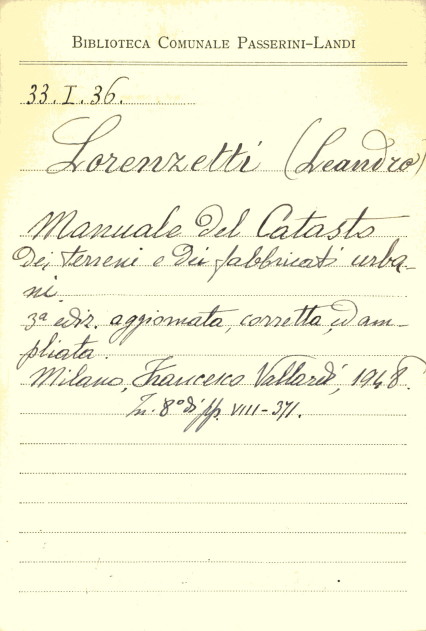 Biblioteca Comunale Passerini-Landi
33.I.36.
Lorenzetti (Leandro)
Manuale del Catasto
dei terreni e dei fabbricati urba-
ni.
3ª ediz. aggiornata, corretta, ed am-
pliata.
Milano, Francesco Vallardi, 1948.
In. 8º di pp. VIII-371.